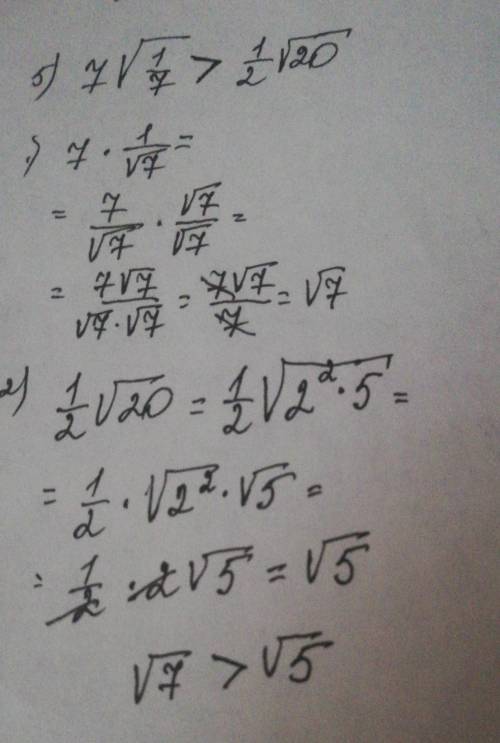 б) 7√(1/7) > 1/2 √20
1) 7 · 1/√7 =
= 7/√7 · √7/√7 =
= 7√7/(√7·√7) = 7√7/7 = √7
2) 1/2 √20 = 1/2 √(2²·5) =
= 1/2 · √(2²) · √5 =
= 1/2 · 2√5 = √5
√7 > √5